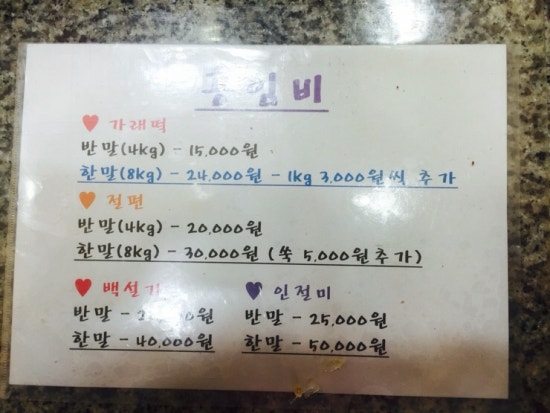 ♥ 가래떡
반말(4kg) - 15,000원
한말(8kg) - 24,000원 - 1kg 3,000원씩 추가
♥ 절편
반말(4kg) - 20,000원
한말(8kg) - 30,000원 (쑥 5,000원추가)
♥ 백설기
반말 -
한말 - 40,000원
♥ 인절미
반말 - 25,000원
한말 - 50,000원